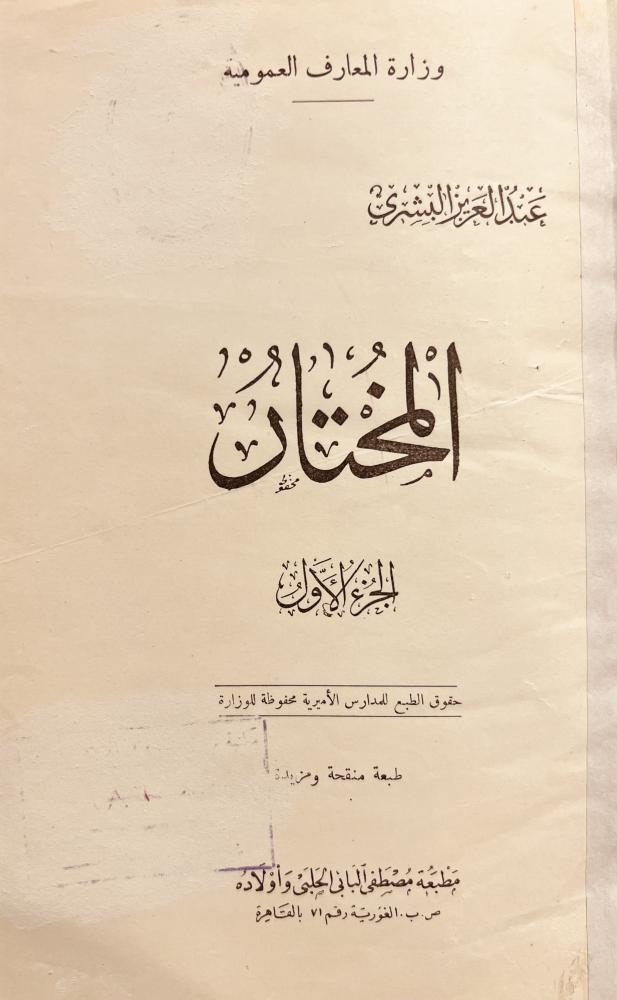 وزارة المعارف العمومية
عَبْدُ العَزِيزِ البِشْرِى
المُخْتَارُ
الجُزْءُ الأَوَّلُ
حقوق الطبع للمدارس الأميرية محفوظة للوزارة
طبعة منقحة ومزيدة
مَطْبَعَة مُصْطَفى البَابى الحَلَبى وَأَوْلَادُه
ص . ب . الغوريّة رقم ٧١ بالقَاهِرة